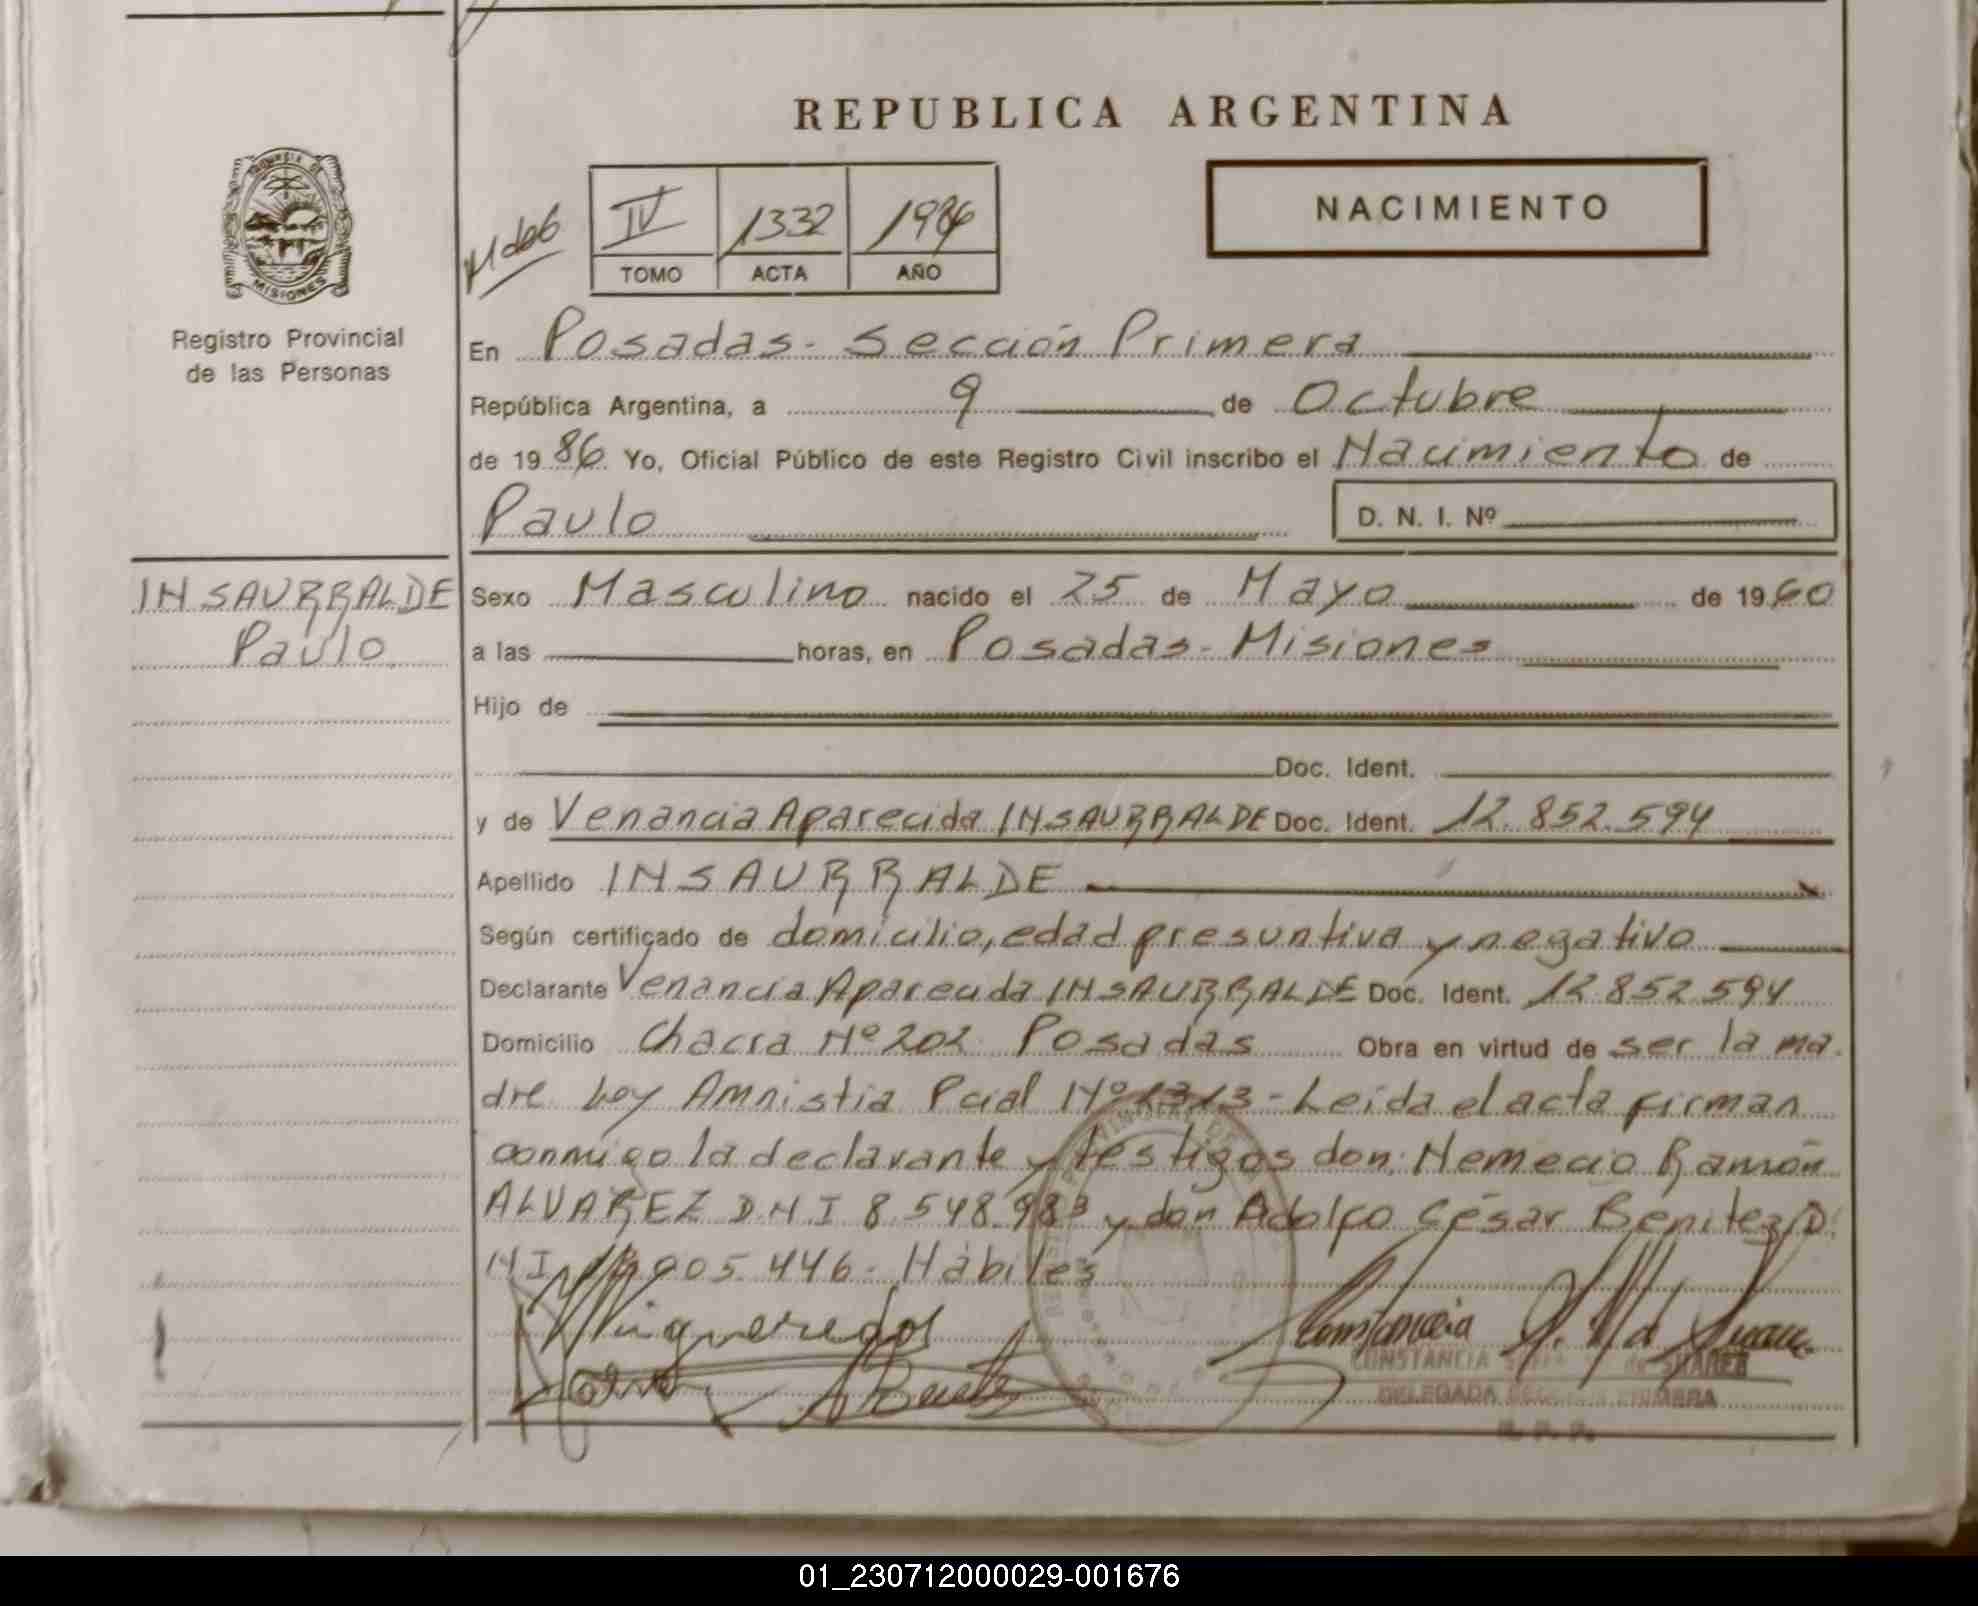 REPUBLICA ARGENTINA
NACIMIENTO
IV 1332 1986
TOMO ACTA AÑO
PROVINCIA DE MISIONES
Registro Provincial
de las Personas
En Posadas - Sección Primera
República Argentina, a 9 de Octubre
de 1986 Yo, Oficial Público de este Registro Civil inscribo el Nacimiento de
Paulo D. N. I. Nº
INSAURRALDE
Paulo
Sexo Masculino nacido el 25 de Mayo de 1960
a las horas, en Posadas - Misiones
Hijo de
Doc. Ident.
y de Venancia Aparecida INSAURRALDE Doc. Ident. 12.852.594
Apellido INSAURRALDE
Según certificado de domicilio, edad presuntiva y negativo
Declarante Venancia Aparecida INSAURRALDE Doc. Ident. 12.852.594
Domicilio Chacra Nº 202 Posadas Obra en virtud de ser la ma
dre Ley Amnistia Pcial Nº 1313 - Leida el acta firman
conmigo la declarante y testigos don: Nemecio Ramón
ALVAREZ D.N.I 8.548.983 y don Adolfo César Benitez D.
NI 005.446 - Hábiles
Constancia
CONSTANCIA de SUAREZ
DELEGADA SECCION PRIMERA
R. P. P.
01_230712000029-001676